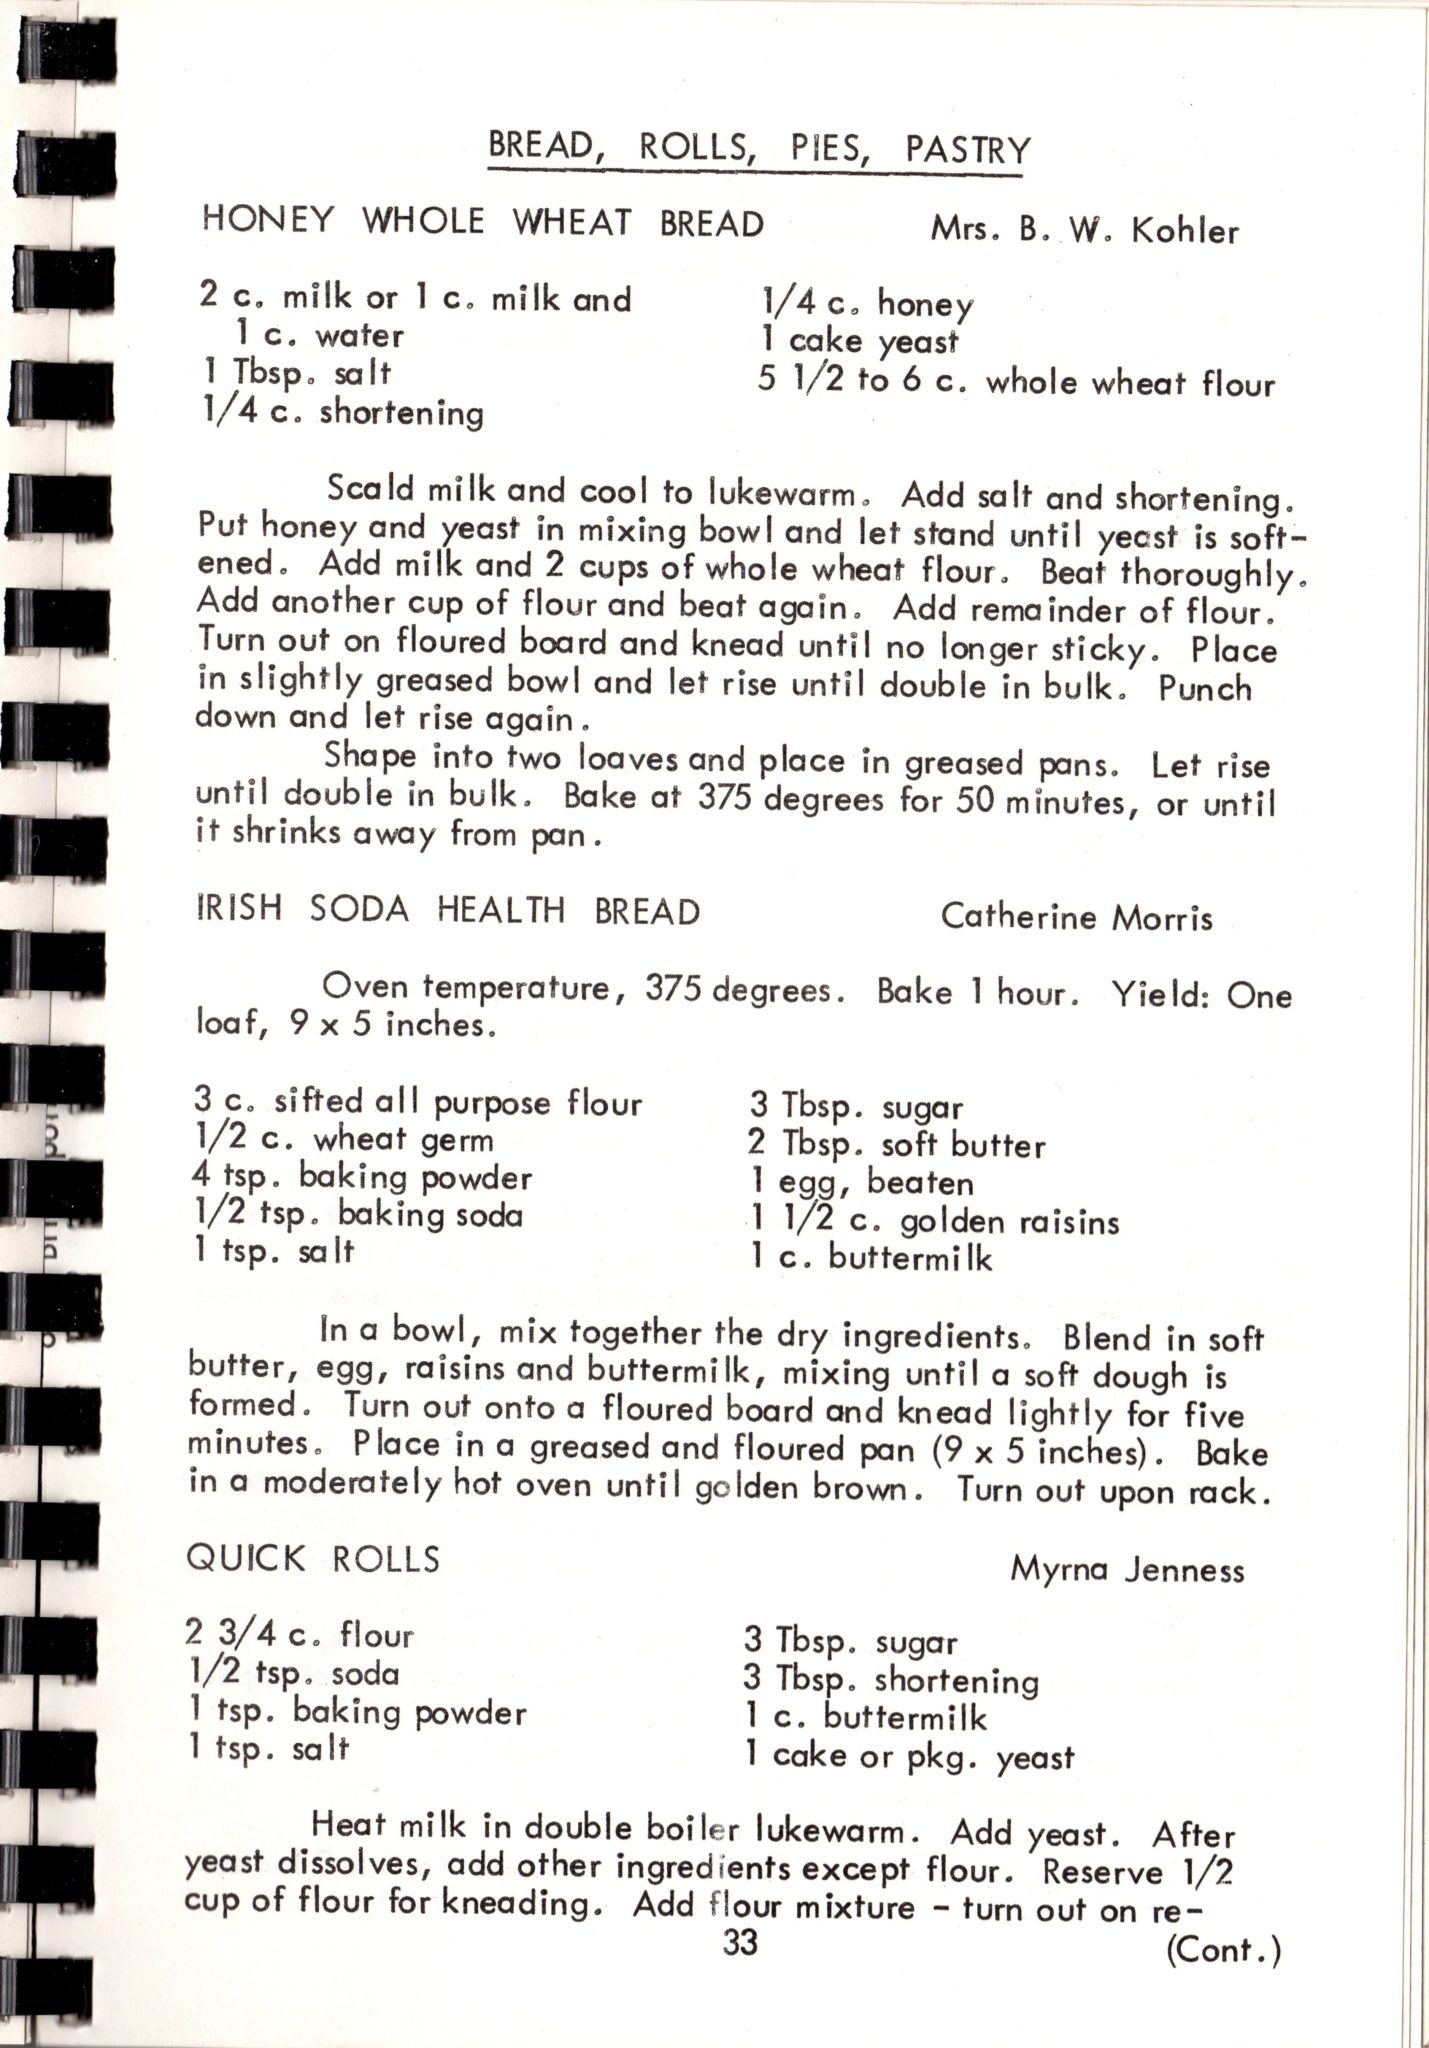 BREAD, ROLLS, PIES, PASTRY
HONEY WHOLE WHEAT BREAD Mrs. B. W. Kohler
2 c. milk or 1 c. milk and
1 c. water
1 Tbsp. salt
1/4 c. shortening
1/4 c. honey
1 cake yeast
5 1/2 to 6 c. whole wheat flour
Scald milk and cool to lukewarm. Add salt and shortening.
Put honey and yeast in mixing bowl and let stand until yeast is soft-
ened. Add milk and 2 cups of whole wheat flour. Beat thoroughly.
Add another cup of flour and beat again. Add remainder of flour.
Turn out on floured board and knead until no longer sticky. Place
in slightly greased bowl and let rise until double in bulk. Punch
down and let rise again.
Shape into two loaves and place in greased pans. Let rise
until double in bulk. Bake at 375 degrees for 50 minutes, or until
it shrinks away from pan.
IRISH SODA HEALTH BREAD Catherine Morris
Oven temperature, 375 degrees. Bake 1 hour. Yield: One
loaf, 9 x 5 inches.
3 c. sifted all purpose flour
1/2 c. wheat germ
4 tsp. baking powder
1/2 tsp. baking soda
1 tsp. salt
3 Tbsp. sugar
2 Tbsp. soft butter
1 egg, beaten
1 1/2 c. golden raisins
1 c. buttermilk
In a bowl, mix together the dry ingredients. Blend in soft
butter, egg, raisins and buttermilk, mixing until a soft dough is
formed. Turn out onto a floured board and knead lightly for five
minutes. Place in a greased and floured pan (9 x 5 inches). Bake
in a moderately hot oven until golden brown. Turn out upon rack.
QUICK ROLLS Myrna Jenness
2 3/4 c. flour
1/2 tsp. soda
1 tsp. baking powder
1 tsp. salt
3 Tbsp. sugar
3 Tbsp. shortening
1 c. buttermilk
1 cake or pkg. yeast
Heat milk in double boiler lukewarm. Add yeast. After
yeast dissolves, add other ingredients except flour. Reserve 1/2
cup of flour for kneading. Add flour mixture - turn out on re-
33
(Cont.)